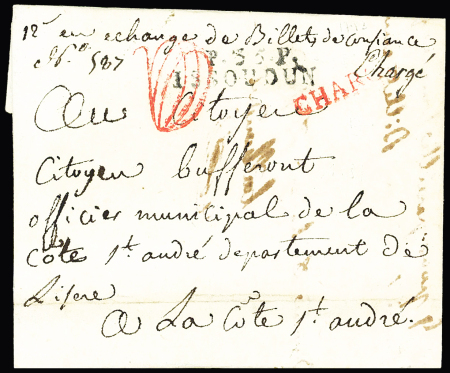 12ᵗ en echange de Billets de confiance
N° 587 Chargé
P.55.P.
ISSOUDUN
CHARGÉ
Au Citoyen
Citoyen bufferont
officier municipal de la
Côte St. andré departement de
Lisere
A La Côte St. andré.